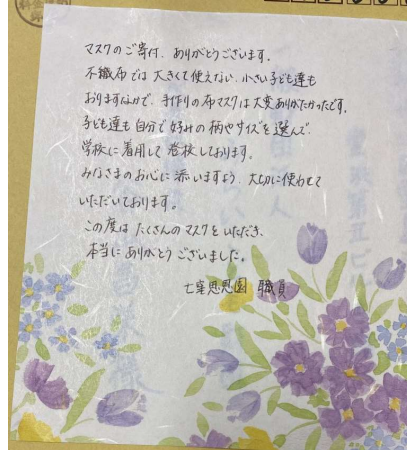 マスクのご寄付、ありがとうございます。
不織布では大きくて使えない、小さい子ども達も
おりますなかで、手作りの布マスクは大変ありがたかったです。
子ども達も自分で好みの柄やサイズを選んで、
学校に着用して登校しております。
みなさまのお心に添いますよう、大切に使わせて
いただいております。
この度はたくさんのマスクをいただき、
本当にありがとうございました。
七窪思恩園 職員